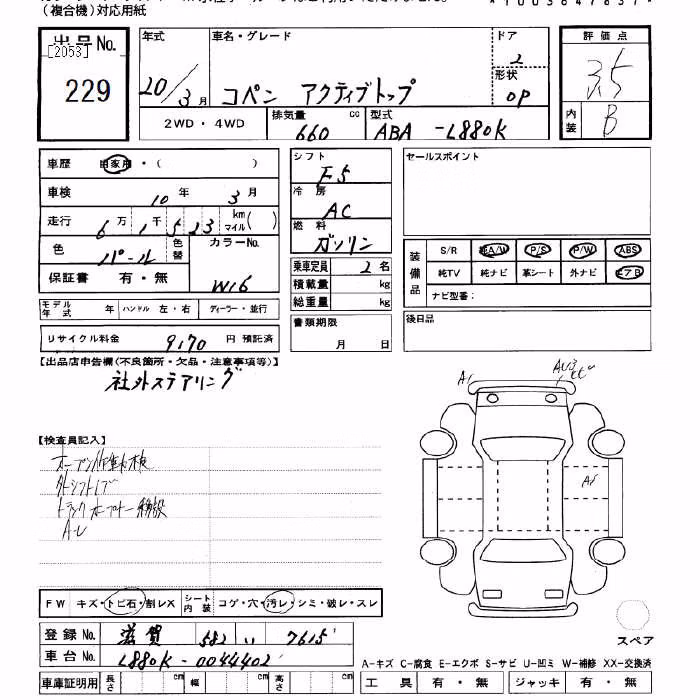 (複合機)対応用紙
出品No.
[2053]
229
年式
車名・グレード
ドア
2
評価点
3.5
20/3月
コペン アクティブトップ
形状
OP
2WD・4WD
排気量
660
cc
型式
ABA-L880K
内装
B
車歴
自家用・( )
車検
10年 3月
走行
6万 1千 5 2 3 km マイル( )
色
パール
色替
カラーNo.
W16
保証書
有・無
シフト
F5
冷房
AC
燃料
ガソリン
乗車定員
2名
積載量
kg
総重量
kg
セールスポイント
装備品
S/R
純A/W
P/S
P/W
ABS
純TV
純ナビ
革シート
外ナビ
エアB
ナビ型番:
モデル年式
年
ハンドル
左・右
ディーラー・並行
書類期限
月 日
後日品
リサイクル料金
9170
円
預託済
【出品店申告欄(不良箇所・欠品・注意事項等)】
社外ステアリング
A1
【検査員記入】
A-L
FW
キズ・トビ石・割レX
シート内装
コゲ・穴・汚レ・シミ・破レ・スレ
登録No.
滋賀 582 い 7615
車台No.
L880K-0044402
車庫証明用
長さ
cm
幅
cm
高さ
cm
スペア
A-キズ C-腐食 E-エクボ S-サビ U-凹ミ W-補修 XX-交換済
工具
有・無
ジャッキ
有・無